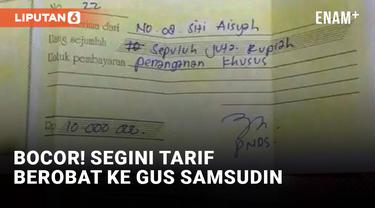 LIPUTAN 6
ENAM+
No. 22
dari No. 02. Siti Aisyah
Uang sejumlah 10 Sepuluh Juta Rupiah
Untuk pembayaran penanganan khusus
Rp 10.000.000
PNDS
BOCOR! SEGINI TARIF
BEROBAT KE GUS SAMSUDIN